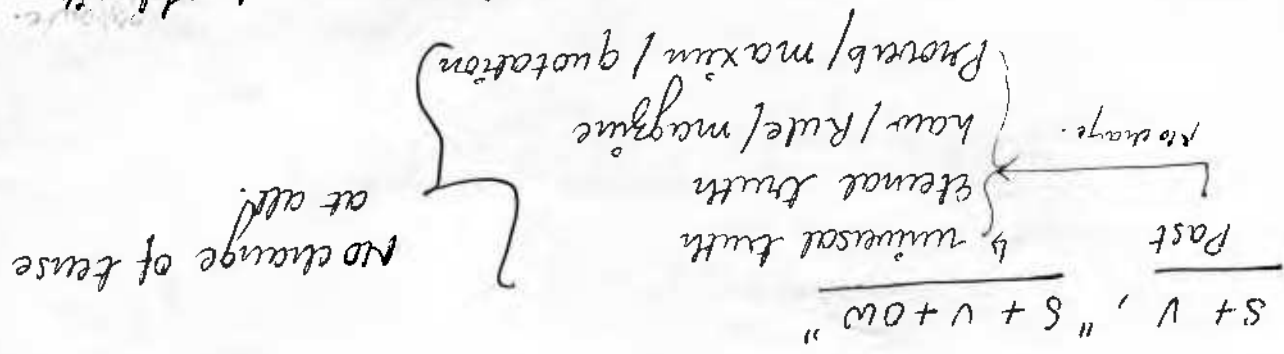 S + V , " S + V + OW "
Past ↳ universal truth
Eternal truth
No change.
Law / Rule / magzine
Proverb / maxim / quotation
No change of tense
at all.